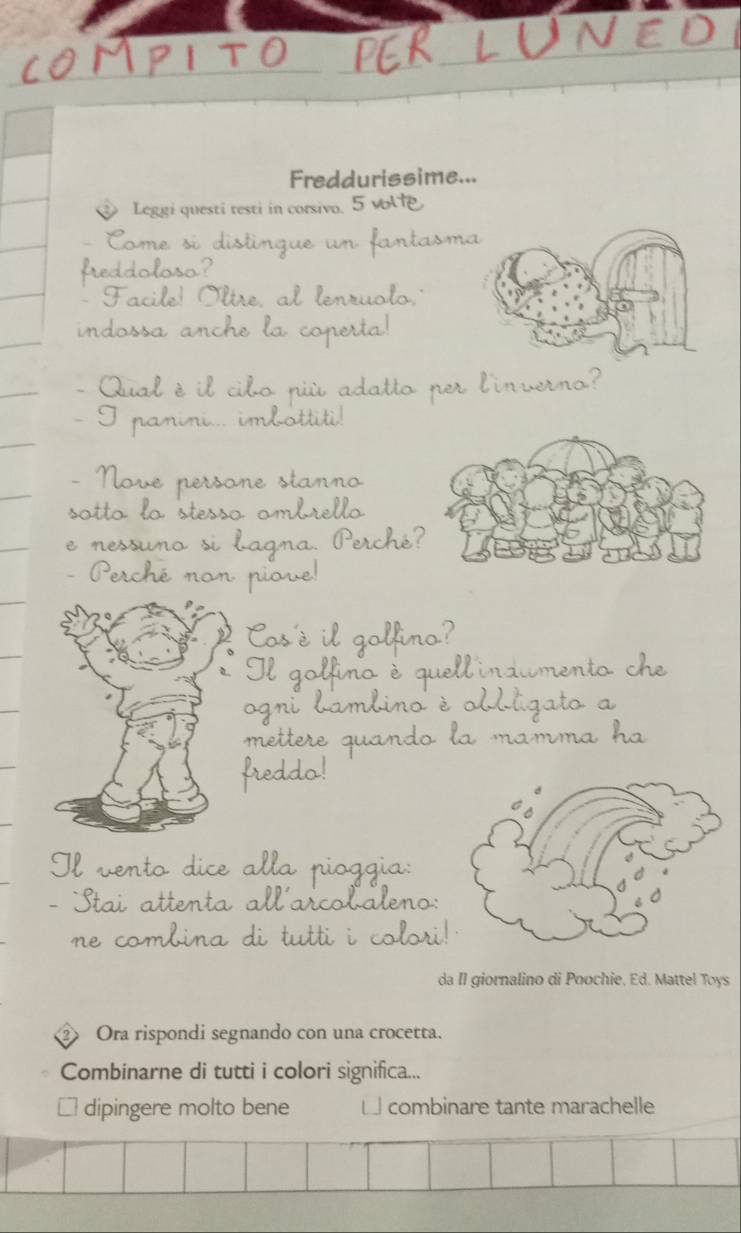 COMPITO PER LUNEDI
Freddurissime...
2 Leggi questi testi in corsivo. 5 volte
- Come si distingue un fantasma
freddoloso?
- Facile! Oltre, al lenzuolo,
indossa anche la coperta!
- Qual è il cibo più adatto per l'inverno?
- I panini... imbottiti!
- Nove persone stanno
sotto lo stesso ombrello
e nessuno si bagna. Perché?
- Perché non piove!
Cos'è il golfino?
Il golfino è quell'indumento che
ogni bambino è obbligato a
mettere quando la mamma ha
freddo!
Il vento dice alla pioggia:
- Stai attenta all'arcobaleno:
ne combina di tutti i colori!
da Il giornalino di Poochie, Ed. Mattel Toys
2 Ora rispondi segnando con una crocetta.
Combinarne di tutti i colori significa...
dipingere molto bene combinare tante marachelle